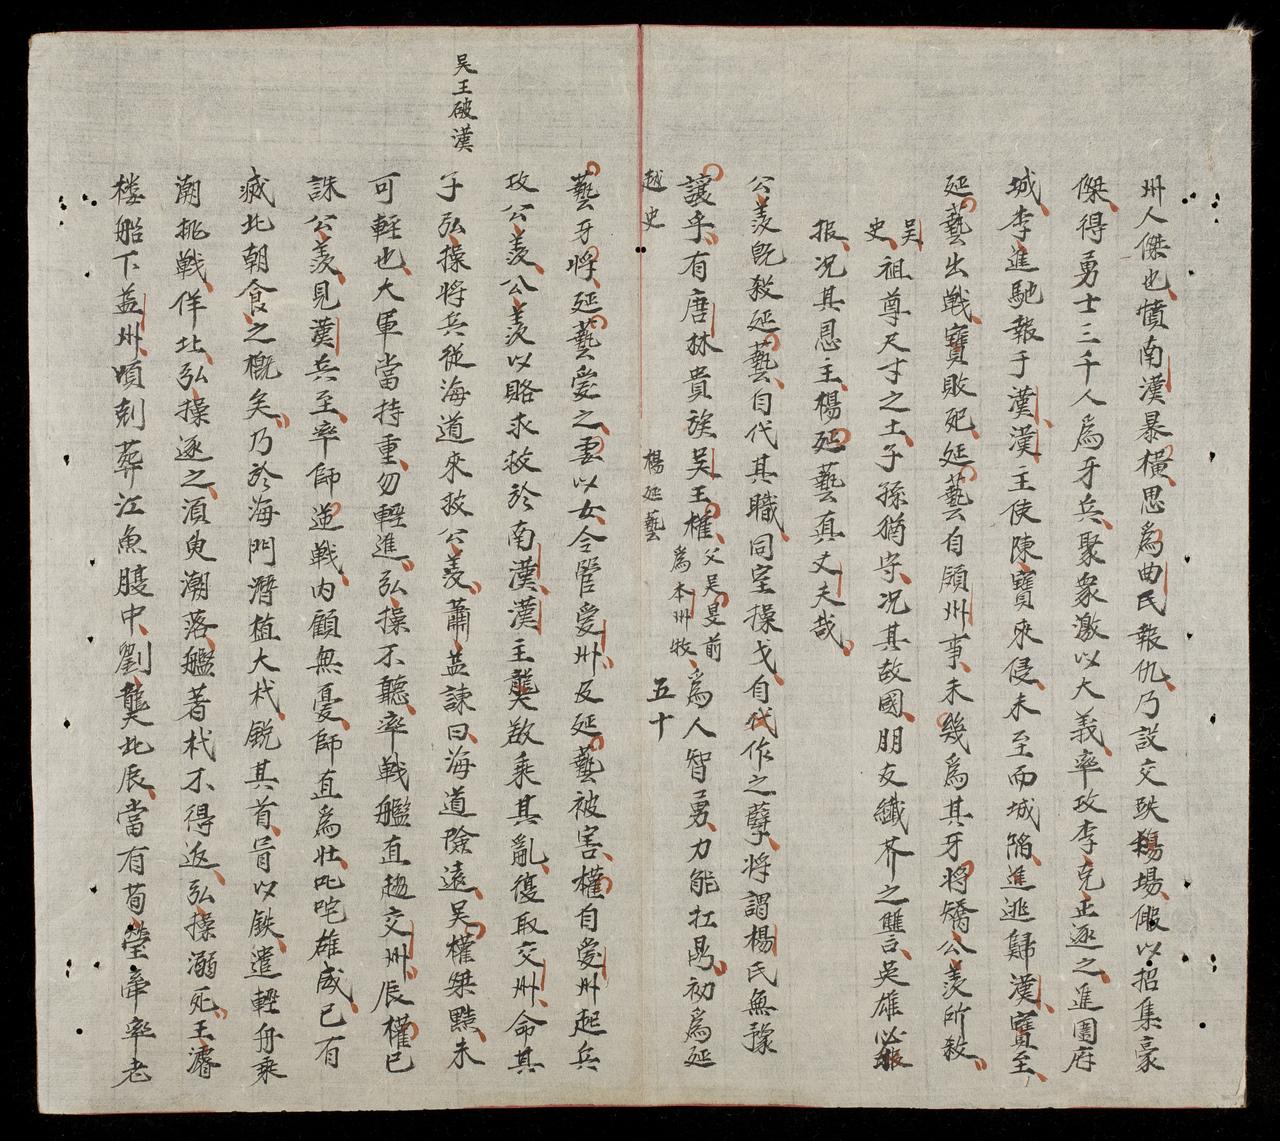 州人傑也憤南漢暴橫思為曲民報仇乃設交跌楊場假以招集豪
傑得勇士三千人為牙兵聚眾激以大義率攻李克正逐之進圍府
城李進馳報于漢漢主使陳寶來侵未至而城陷進逃歸漢寶至
延藝出戰寶敗死延藝自領州事未幾為其牙將矯公羨所殺
吳史祖尊尺寸之土子孫猶守況其故國朋友纖芥之讐英雄必報
报况其恩主楊延藝真丈夫哉
公羨既殺延藝自代其職同室操戈自代作之孽將謂楊氏無豫
讓乎有唐林貴族吳王權父吳旻前為本州牧為人智勇力能扛鼎初為延
越史 楊延藝 五十
藝牙將延藝愛之妻以女令管愛州及延藝被害權自愛州起兵
攻公羨公羨以賂求救於南漢漢主龑欲乘其亂復取交州命其
子弘操將兵從海道來救公羨蕭益諫曰海道險遠吳權桀黠未
吳王破漢
可輕也大軍當持重勿輕進弘操不聽率戰艦直趨交州辰權已
誅公羨見漢兵至率師逆戰內顧無憂師直為壯叱咤雄威已有
滅北朝食之概矣乃於海門潛植大杙銳其首冐以鉄遣輕舟乘
潮挑戰佯北弘操逐之湏臾潮落艦著杙不得返弘操溺死王濬
楼船下益州頃刻葬江魚腹中劉龑北辰當有荀瑩牵率老